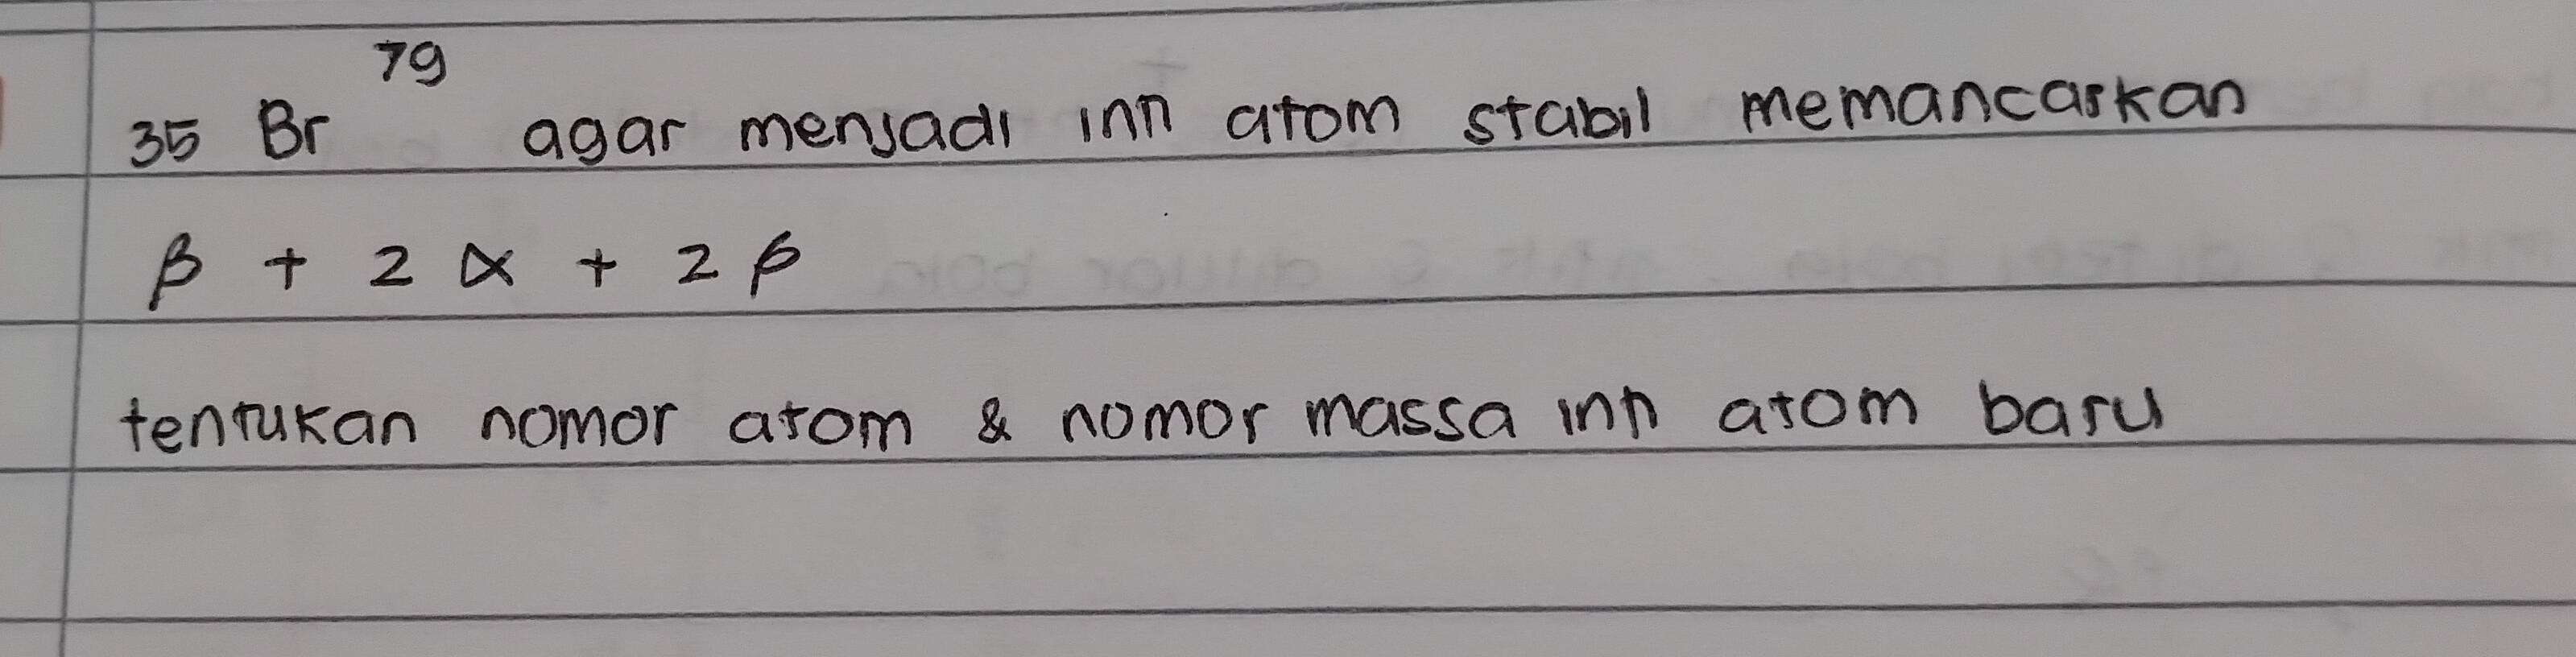 35 Br 79 agar menjadi inti atom stabil memancarkan
β + 2 α + 2 β
tentukan nomor atom & nomor massa inti atom baru